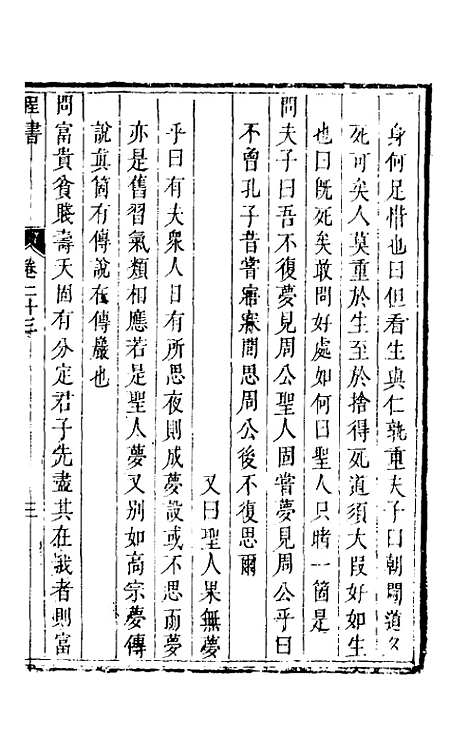 身何足惜也曰但看生與仁孰重夫子曰朝聞道夕
死可矣人莫重於生至於捨得死道須大段好如生
也曰既死矣敢問好處如何曰聖人只睹一箇是
問夫子曰吾不復夢見周公聖人固嘗夢見周公乎曰
不曾孔子昔嘗寤寐間思周公後不復思爾
又曰聖人果無夢
乎曰有夫衆人日有所思夜則成夢設或不思而夢
亦是舊習氣類相應若是聖人夢又別如高宗夢傅
說真箇有傅說在傅巖也
問富貴貧賤壽夭固有分定君子先盡其在我者則富
程書
卷二十三
三